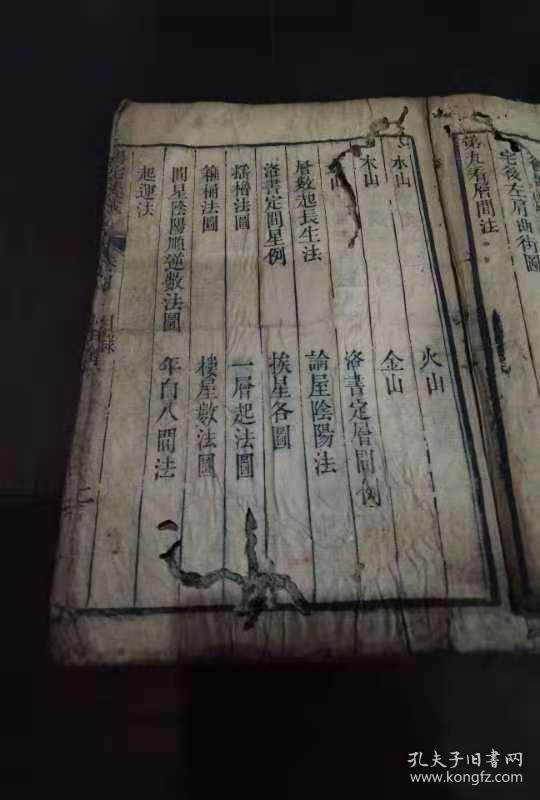 宅後左肩曲街圖
第九看層間法
水山
火山
木山
金山
山
洛書定層間例
層數起長生法
論屋陰陽法
洛書定間星例
挨星各圖
一層起法圖
法圖
樓星數法圖
桶法圖
間星陰陽順逆數法圖
年白八間法
起運法
目錄
二
孔夫子旧书网
www.kongfz.com